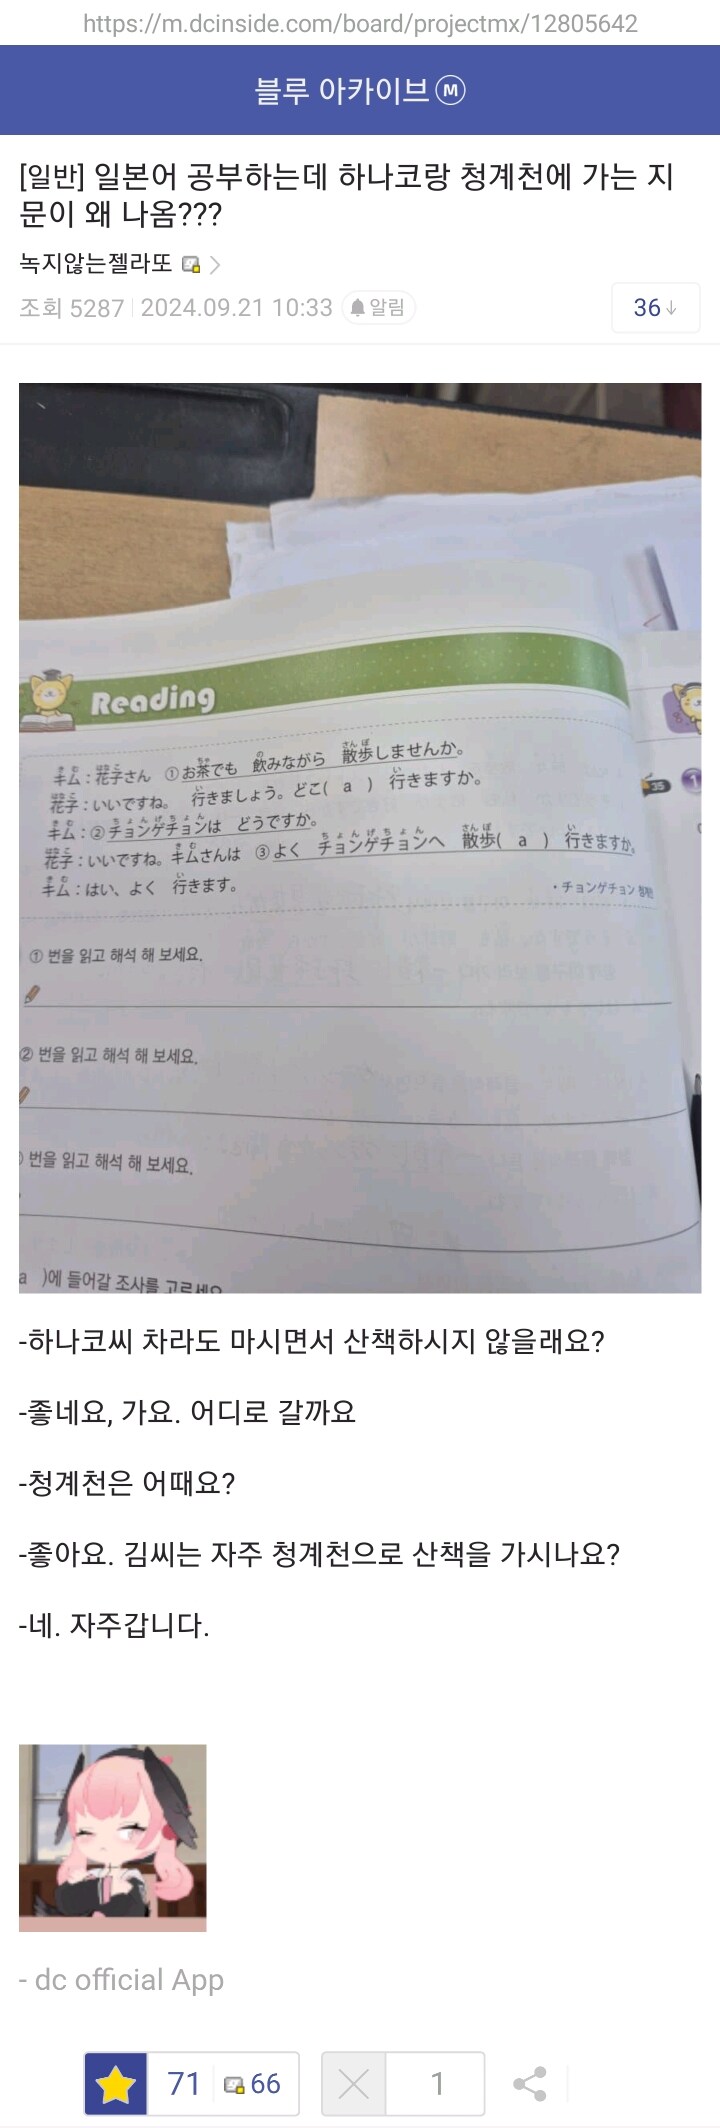 https://m.dcinside.com/board/projectmx/12805642
블루 아카이브 M
[일반] 일본어 공부하는데 하나코랑 청계천에 가는 지
문이 왜 나옴???
녹지않는젤라또
조회 5287 2024.09.21 10:33 알림
36
Reading
キム : 花子さん ①お茶でも 飲みながら 散歩しませんか。
花子 : いいですね。 行きましょう。どこ( a ) 行きますか。
キム : ②チョンゲチョンは どうですか。
花子 : いいですね。キムさんは ③よく チョンゲチョンへ 散歩( a ) 行きますか。
キム : はい、よく 行きます。
・チョンゲチョン 청계천
35
1
① 번을 읽고 해석 해 보세요.
② 번을 읽고 해석 해 보세요.
번을 읽고 해석 해 보세요.
a )에 들어갈 조사를 고르세요
-하나코씨 차라도 마시면서 산책하시지 않을래요?
-좋네요, 가요. 어디로 갈까요
-청계천은 어때요?
-좋아요. 김씨는 자주 청계천으로 산책을 가시나요?
-네. 자주갑니다.
- dc official App
71 66 1